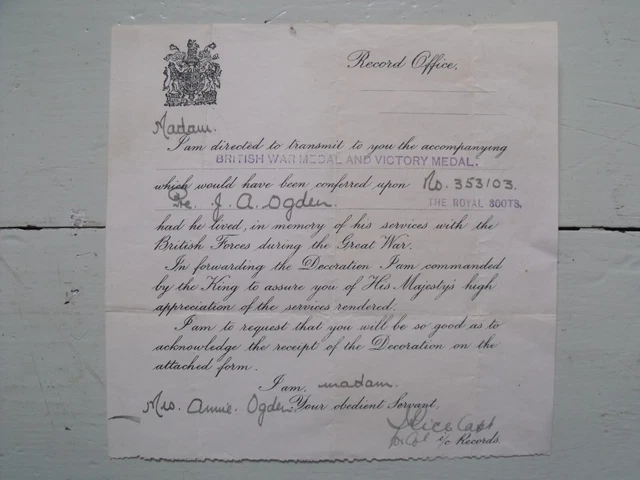 Record Office,
Madam.
I am directed to transmit to you the accompanying
BRITISH WAR MEDAL AND VICTORY MEDAL.
which would have been conferred upon No. 353103.
Pte. J. A. Ogden. THE ROYAL SCOTS,
had he lived, in memory of his services with the
British Forces during the Great War.
In forwarding the Decoration I am commanded
by the King to assure you of His Majesty's high
appreciation of the services rendered.
I am to request that you will be so good as to
acknowledge the receipt of the Decoration on the
attached form.
I am, madam.
Mrs. Annie. Ogden. Your obedient Servant,
Capt
i/c Records.